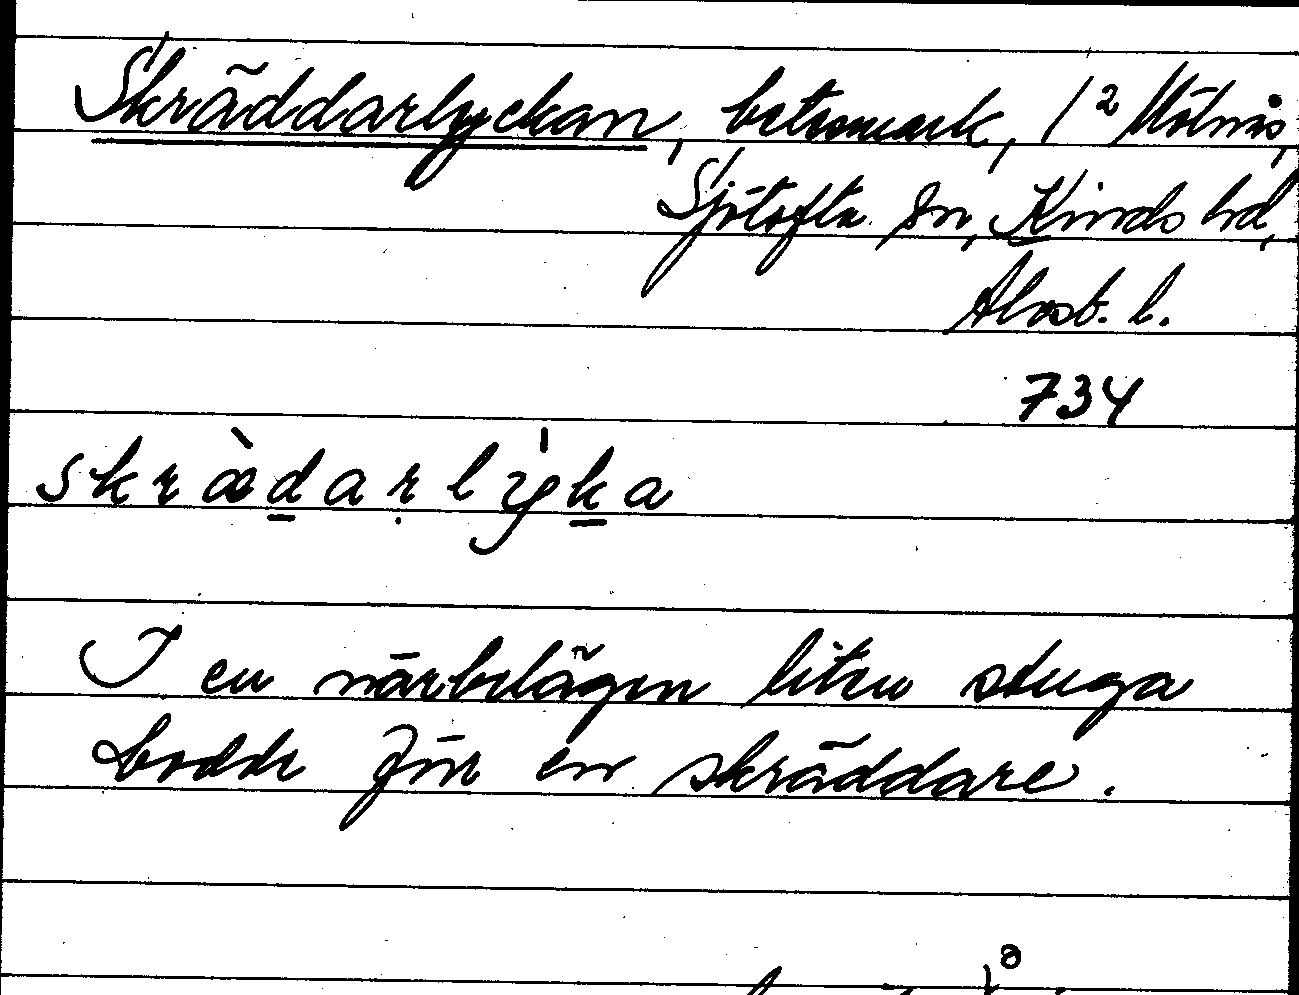 Skräddarlyckan, betesmark, 1² Mölnås,
Sjötofta sn, Kinds hd,
Älvsb. l.
734
skrædarlyka
I en närbelägen liten stuga
bodde förr en skräddare.